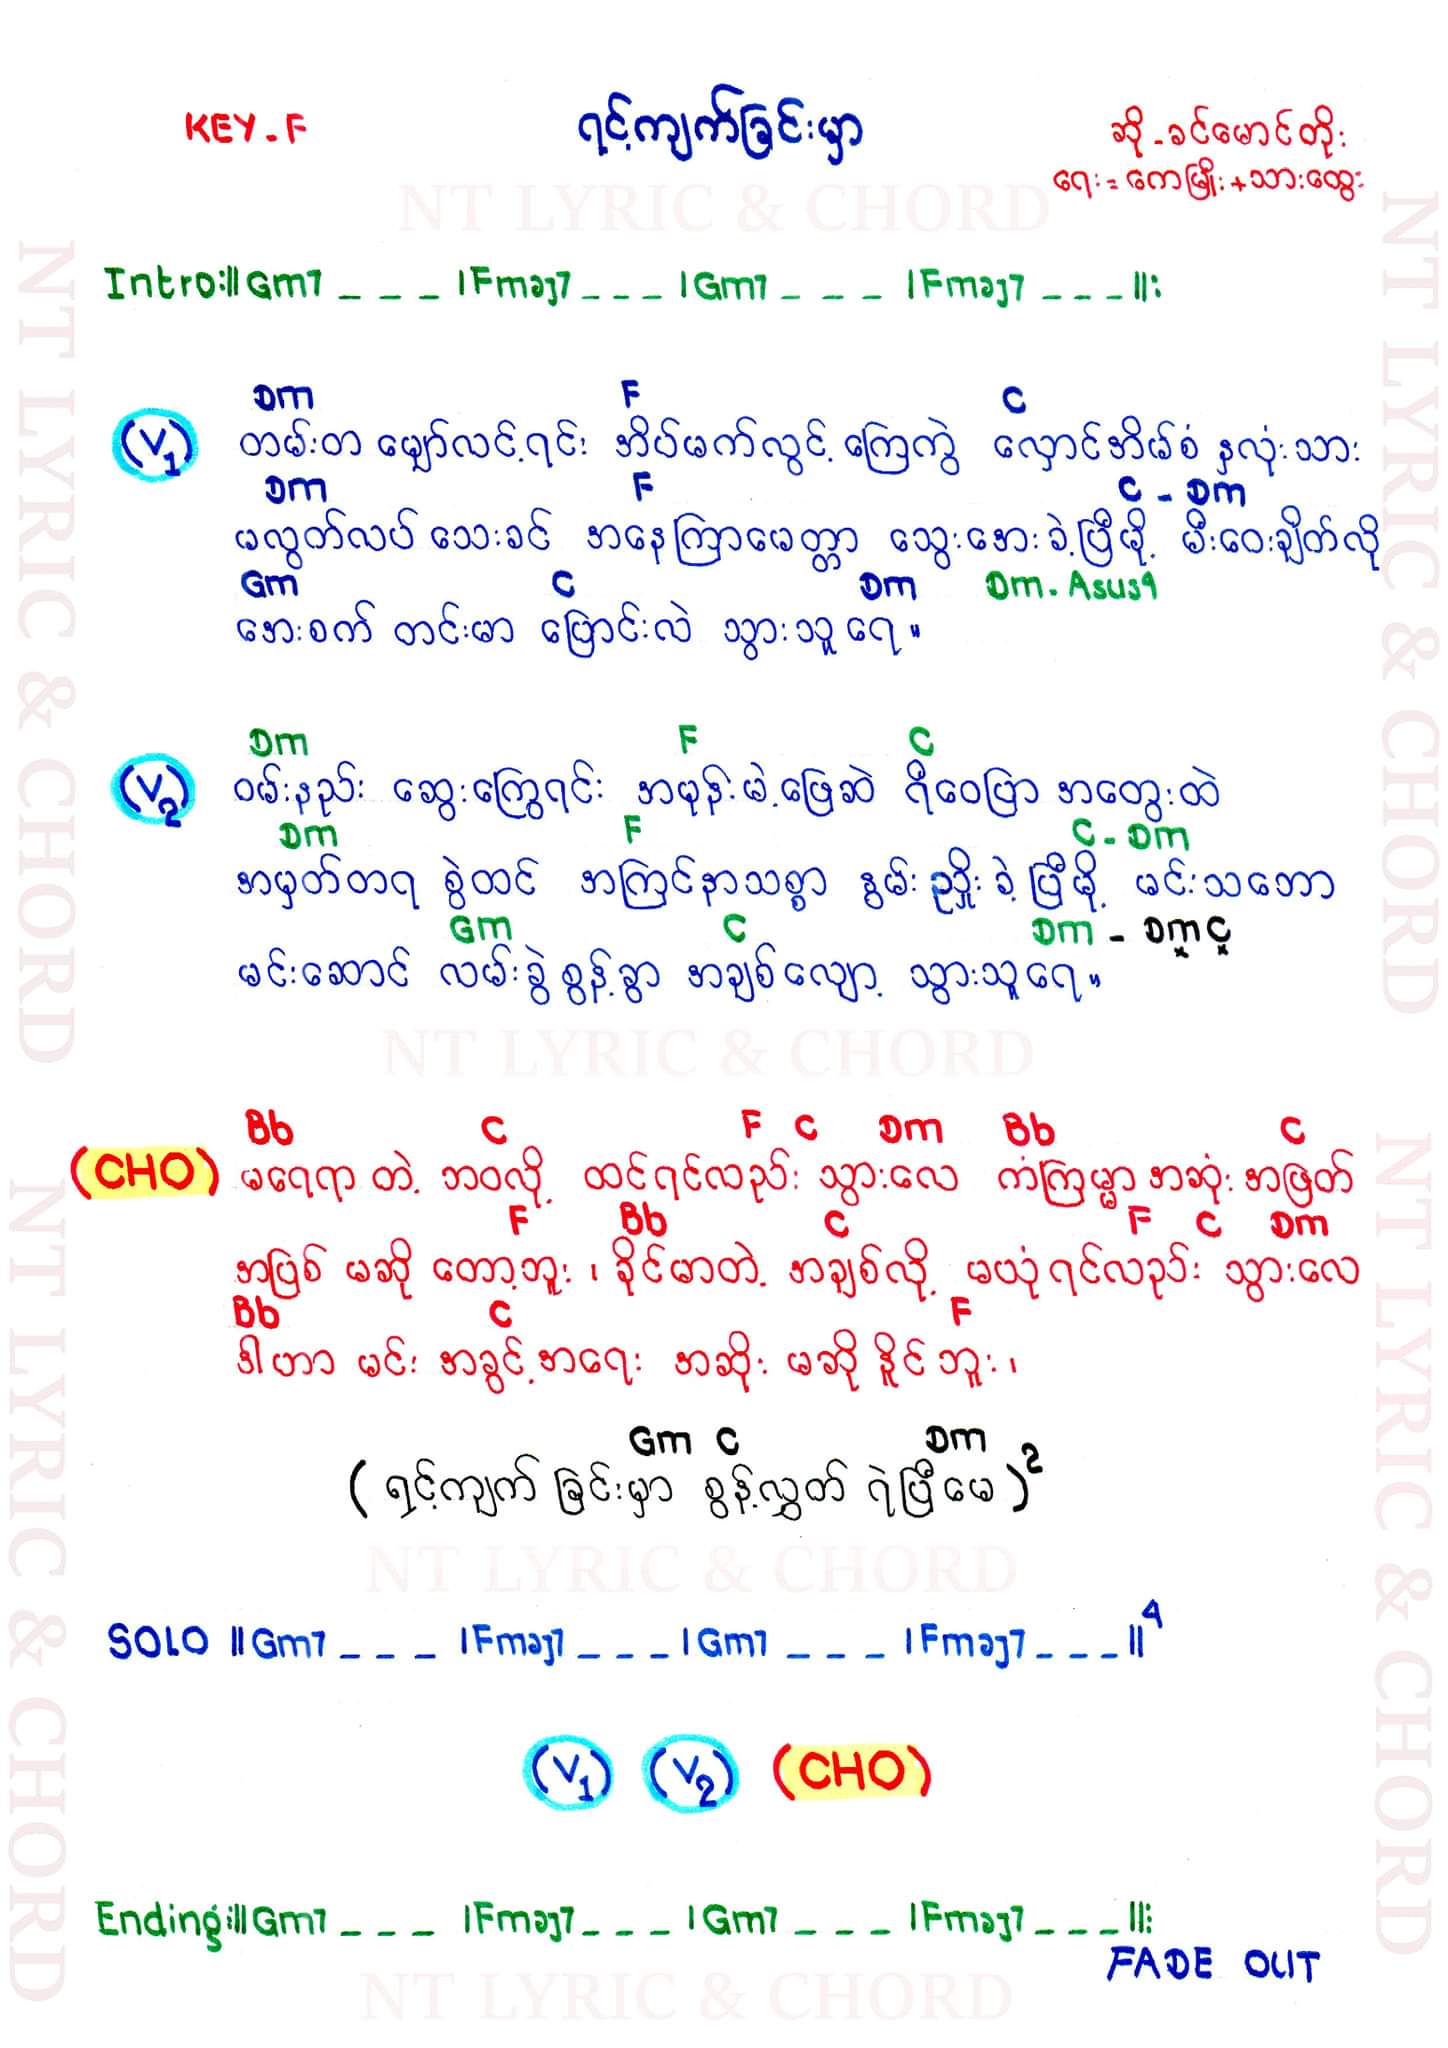 KEY-F
ရင့်ကျက်ခြင်းမှာ
ဆို-ခင်မောင်တိုး
ရေး=ကေမြိုး+သားထွေး
NT LYRIC & CHORD
Intro:||Gm7 _ _ _ |Fmaj7 _ _ _ |Gm7 _ _ _ |Fmaj7 _ _ _||:
Dm F C
(V1) တမ်းတ မျှော်လင့်ရင်း အိပ်မက်လွင့် ကြေကွဲ လှောင်အိမ်စံ နှလုံးသား
Dm F C - Dm
မလွတ်လပ် သေးခင် အနေကြာမေတ္တာ သွေးအေးခဲ့ပြီမို့ မီးဝေးချိတ်လို
Gm C Dm Dm-Asus4
အေးစက် တင်းမာ ပြောင်းလဲ သွားသူရေ။
Dm F C
(V2) ဝမ်းနည်း ဆွေးကြွေရင်း အမုန်းမဲ့ဖြေဆဲ ရီဝေပြာ အတွေးထဲ
Dm F C - Dm
အမှတ်တရ စွဲထင် အကြင်နာသစ္စာ နွမ်းဥှိုးခဲ့ပြီမို့ မင်းသဘော
Gm C Dm - Dm C
မင်းဆောင် လမ်းခွဲစွန့်ခွာ အချစ်လျော့ သွားသူရေ။
NT LYRIC & CHORD
Bb C F C Dm Bb C
(CHO) မရေရာ တဲ့ ဘဝလို့ ထင်ရင်လည်း သွားလေ ကံကြမ္မာ အဆုံး အဖြတ်
F Bb C F C Dm
အပြစ် မဆို တော့ဘူး၊ ခိုင်မာတဲ့ အချစ်လို့ မယုံရင်လည်း သွားလေ
Bb C F
ဒါဟာ မင်း အခွင့်အရေး အဆိုး မဆို နိုင်ဘူး၊
Gm C Dm
(ရင့်ကျက်ခြင်းမှာ စွန့်လွှတ် ရဲပြီမေ)2
NT LYRIC & CHORD
SOLO ||Gm7 _ _ _ |Fmaj7 _ _ _|Gm7 _ _ _ |Fmaj7 _ _ _||4
(V1) (V2) (CHO)
Ending:||Gm7 _ _ _ |Fmaj7 _ _ _ |Gm7 _ _ _ |Fmaj7 _ _ _||:
FADE OUT
NT LYRIC & CHORD
NT LYRIC & CHORD
NT LYRIC & CHORD
NT LYRIC & CHORD
NT LYRIC & CHORD